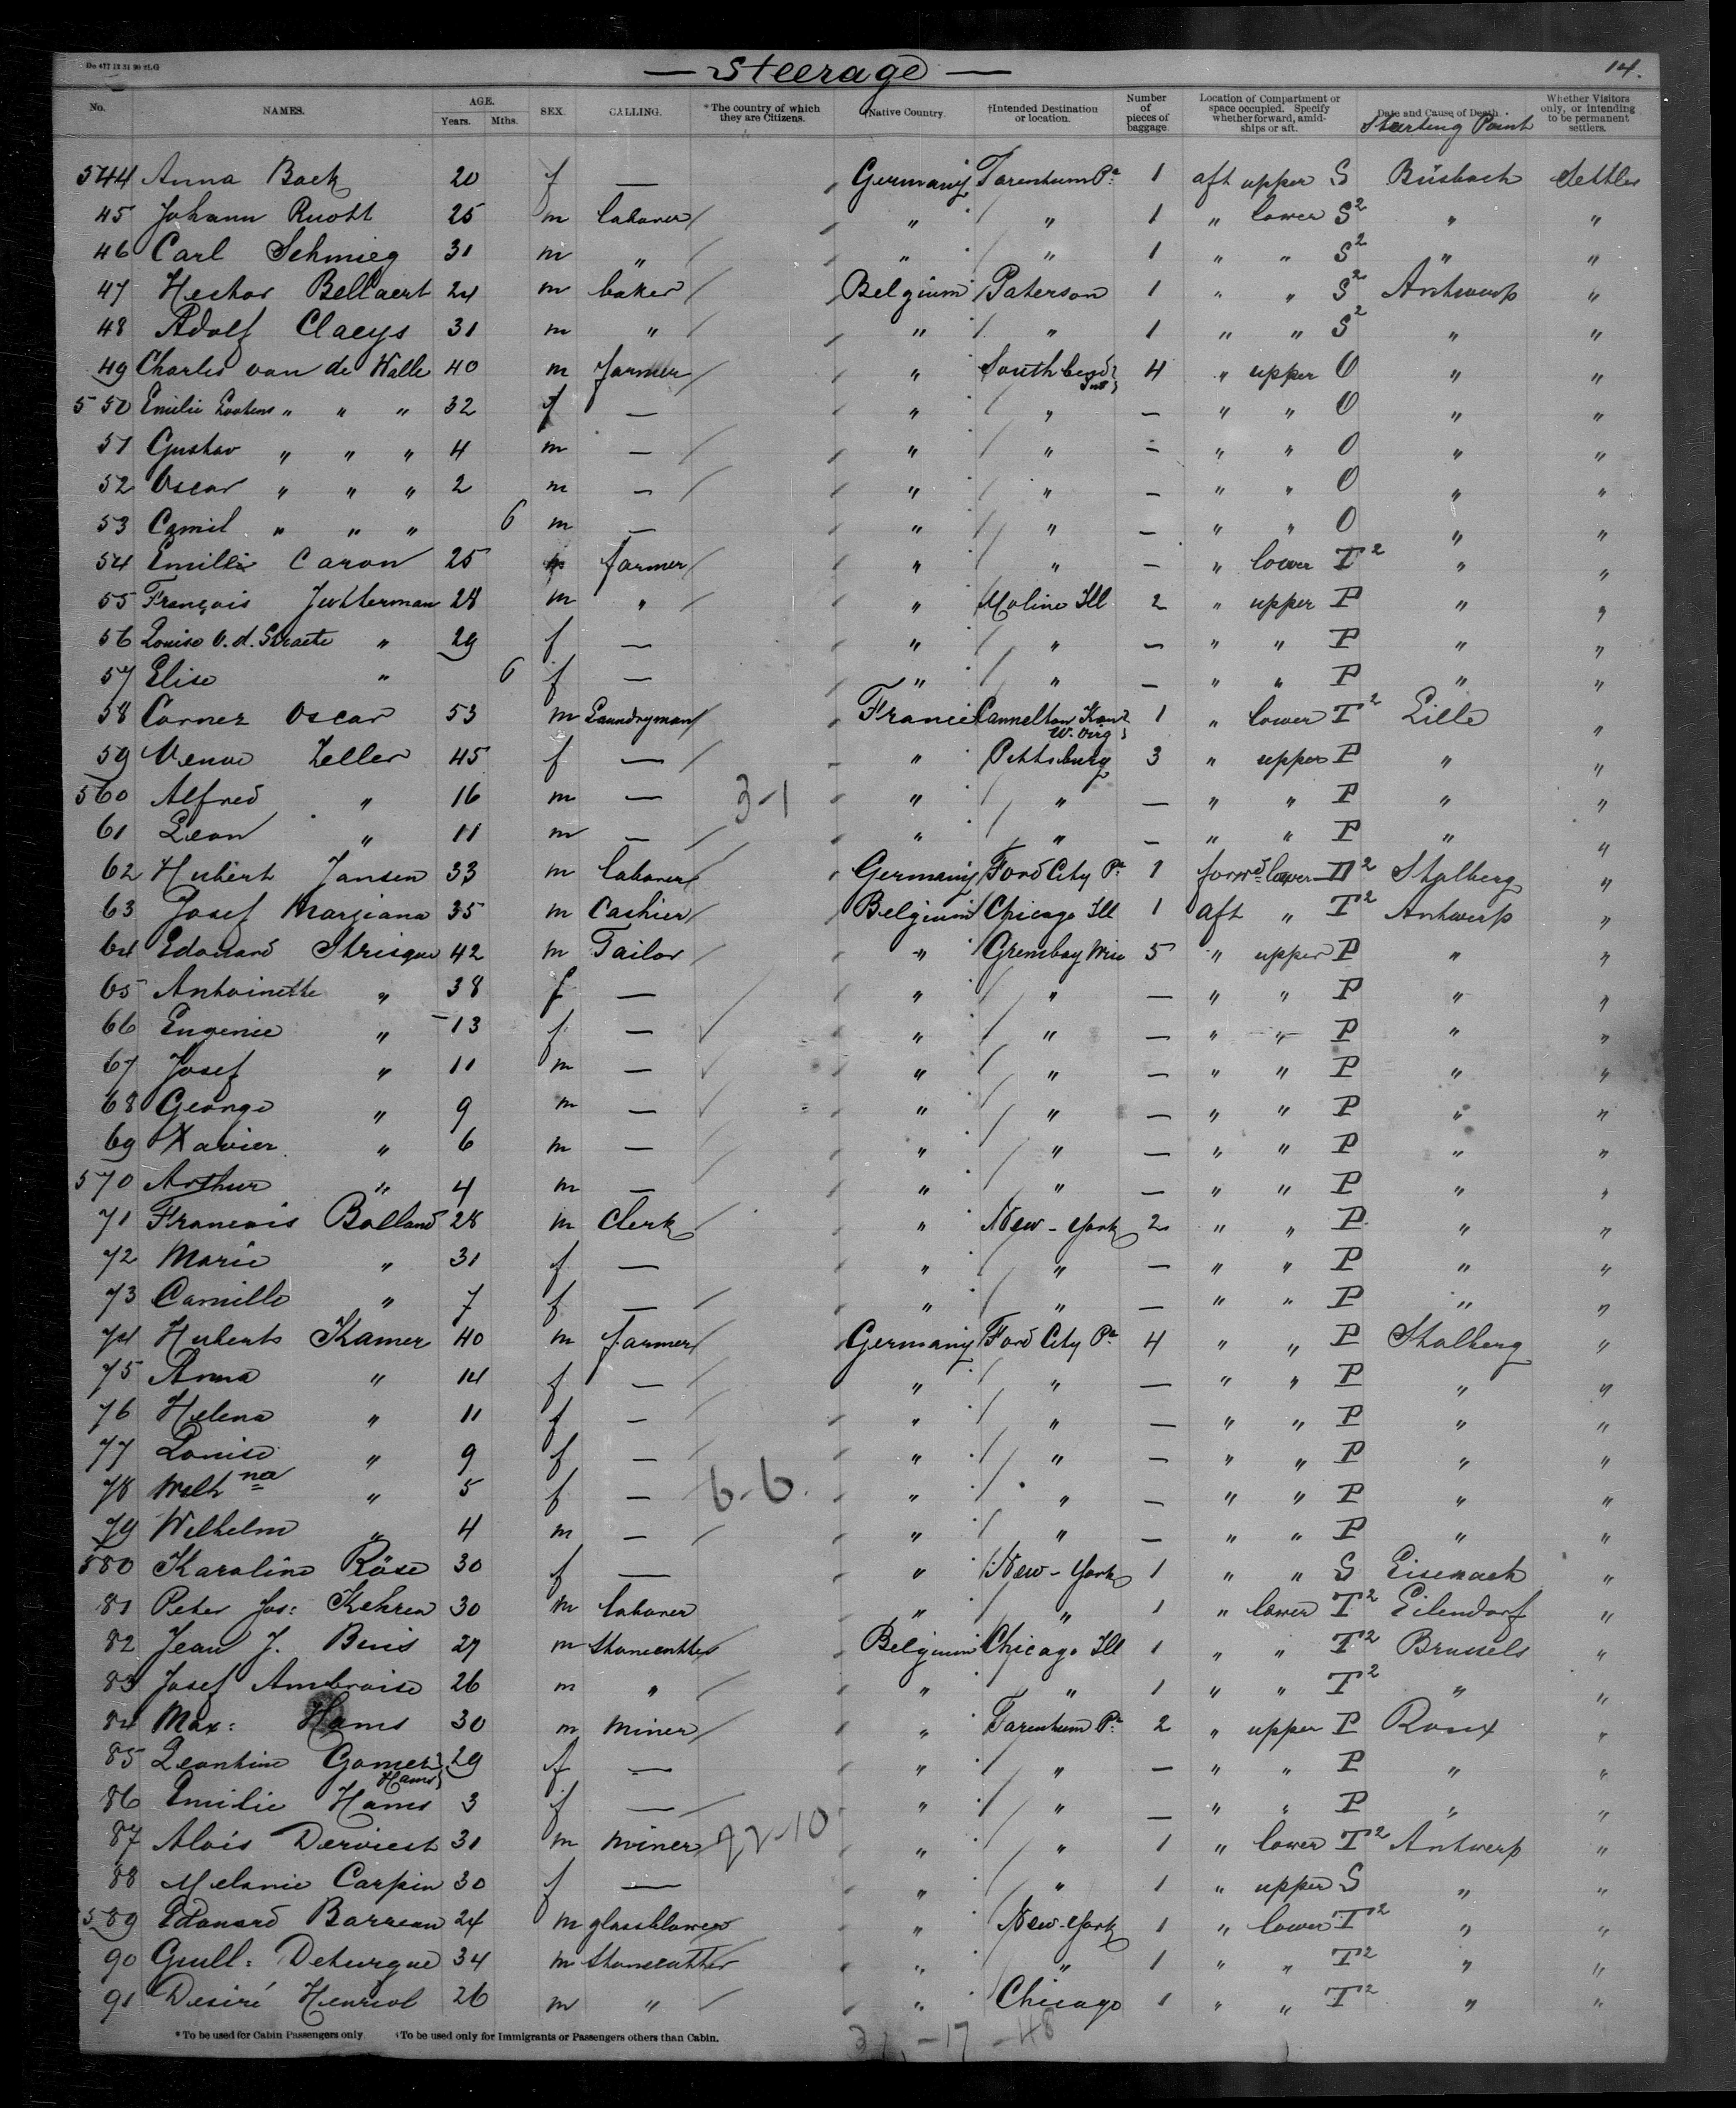 Do 477 12 31 90 2LG
— Steerage — 14.
No. NAMES. AGE. Years. Mths. SEX. CALLING. *The country of which they are Citizens. †Native Country. †Intended Destination or location. Number of pieces of baggage. Location of Compartment or space occupied. Specify whether forward, amidships or aft. Date and Cause of Death. Whether Visitors only, or intending to be permanent settlers.
Starting Point
544 Anna Bock 20 f — Germany Tarentum Pa 1 aft upper S Büsbach Settler
45 Johann Ruott 25 m laborer " " 1 " lower S2 " "
46 Carl Schmieg 31 m " " " 1 " " S2 " "
47 Hector Bellaert 24 m baker Belgium Paterson 1 " " S2 Antwerp "
48 Adolf Claeys 31 m " " " 1 " " S2 " "
49 Charles van de Walle 40 m farmer " Southbend Ind 4 " upper O " "
550 Emilie Lootens " " " 32 f — " " — " " O " "
51 Gustav " " " 4 m — " " — " " O " "
52 Oscar " " " 2 m — " " — " " O " "
53 Camil " " " 6 m — " " — " " O " "
54 Caron 25 farmer " " — " lower T2 " "
55 François 28 m " " Moline Ill 2 " upper P " "
56 Louise v. d. Straete " 29 f — " " — " " P " "
57 Elise " 6 f — " " — " " P " "
58 Cornez Oscar 53 m Laundryman France Cannelton Kan W. Virg 1 " lower T2 Lille "
59 Zeller 45 f — " Pittsburg 3 " upper P " "
560 Alfred " 16 m — 3-1 " " — " " P " "
61 Leon " 11 m — " " — " " P " "
62 Hubert Jansen 33 m laborer Germany Ford City Pa 1 lower 2 Stolberg "
63 Josef Margiana 35 m Cashier Belgium Chicago Ill 1 aft " T2 Antwerp "
64 Edouard Strisque 42 m Tailor " Greenbay Wisc 5 " upper P " "
65 Antoinette " 38 f — " " — " " P " "
66 Eugenie " 13 f — " " — " " P " "
67 Josef " 11 m — " " — " " P " "
68 George " 9 m — " " — " " P " "
69 Xavier " 6 m — " " — " " P " "
570 Arthur " 4 m — " " — " " P " "
71 Francois Bolland 28 m Clerk " New-York 2 " " P " "
72 Marie " 31 f — " " — " " P " "
73 Camille " 7 f — " " — " " P " "
74 Huberts Kamer 40 m farmer Germany Ford City Pa 4 " " P Stolberg "
75 Anna " 14 f — " " — " " P " "
76 Helena " 11 f — " " — " " P " "
77 Louise " 9 f — " " — " " P " "
78 Wilhna " 5 f — 6-6. " " — " " P " "
79 Wilhelm " 4 m — " " — " " P " "
580 Karoline Röse 30 f — " New-York 1 " " S Eisenach "
81 Peter Jos: Kehren 30 m laborer " " 1 " lower T2 Eilendorf "
82 Jean J. Beris 27 m Stonecutter Belgium Chicago Ill 1 " " T2 Brussels "
83 Josef Ambroise 26 m " " " 1 " " T2 " "
84 Max: Hams 30 m miner " Tarentum Pa 2 " upper P Roux "
85 Leontine Gomez Hams 29 f — " " — " " P " "
86 Emilie Hams 3 f — " " — " " P " "
87 Alois Derviest 31 m miner 22-10 " " 1 " lower T2 Antwerp "
88 Melanie Carpin 30 f — " " 1 " upper S " "
589 Edouard Barreau 24 m glassblower " New-York 1 " lower T2 " "
90 Guill: Deturque 34 m Stonecutter " " 1 " " T2 " "
91 Desiré Henriot 26 m " " Chicago 1 " " T2 " "
*To be used for Cabin Passengers only. †To be used only for Immigrants or Passengers others than Cabin.
-17-48